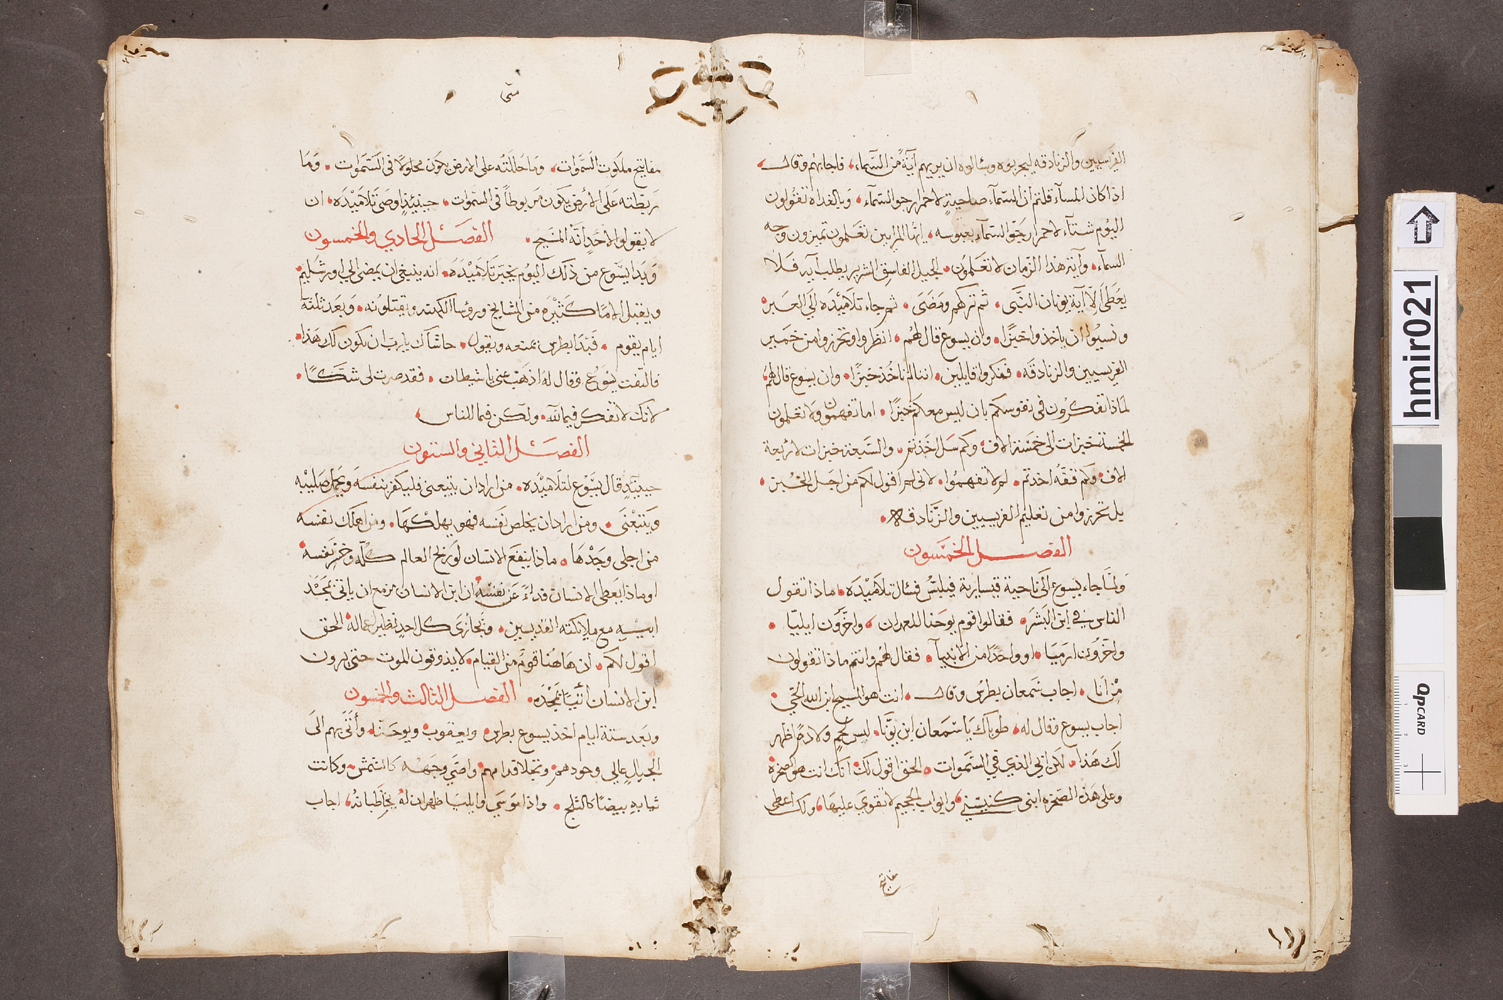 الفريسيين والزنادقه ليجربوه وسئالوه ان يريهم آيةً من السماء، فاجابهم وقال
اذا كان المساء قلتم أن السماء صاحيةٍ لاحمرار جو السماء، وبالغداه تقولون
اليوم شتاء لاحمرار جو السماء بعبوسه، ايها المرايين تعلمون تميزون وجه
السماء، وآية هذا الزمان لا تعلمون، الجيل الفاسق الشرير يطلب آيه فلا
يعطى إلا آية يونان النبى، ثم تركهم ومضى، ثم جاء تلاميذه إلى العبر
ونسيوا أن ياخذوا خبزًا، وان يسوع قال لهم، انظروا وتحرزوا من خمير
الفريسيين والزنادقه، ففكروا قايلين، اننا لم ناخذ خبزًا، وان يسوع قال لهم
لماذا تفكرون فى نفوسكم بان ليس معاكم خبزًا، اما تفهمون ولا تعلمون
الخمسة خبزات الى خمسة الاف وكم سل اخذتم، والسبعة خبزات لاربعة
الاف وكم قفة اخذتم، لم لا تفهموا، لانى لم اقول لكم من اجل الخبز،
بل تحرزوا من تعليم الفريسيين والزنادقه،
الفصل الخمسون
ولما جاء يسوع الى ناحية قيسارية فيلبس فسئال تلاميذه، ماذا تقول
الناس في ابن البشر، فقالوا قوم يوحنا المعمدان، واخرون ايليا،
واخرون ارميا، او واحدًا من الانبياء، فقال لهم وانتم ماذا تقولون
من انا، اجاب شمعان بطرس وقال، انت هو المسيح ابن الله الحي،
اجاب يسوع وقال له، طوباك يا سمعان ابن يونا، ليس لحم ولا دم اظهر
لك هذا، لكن ابي الذي في السموات، الحق اقول لك انك انت هو الصخره
وعلى هذه الصخره ابنى كنيستي، وابواب الجحيم لا تقوى عليها، ولك اعطى
مفاتيح
متى
مفاتيح ملكوت السموات، وما حللته على الارض يكون محلولًا في السموات، وما
ربطته على الأرض يكون مربوطاً في السموات، حينئيذٍ اوصى تلاميذه، ان
لا يقولوا لأحدٍ انه المسيح، الفصل الحادي والخمسون
وبدا يسوع من ذلك اليوم يخبر تلاميذه، انه ينبغى ان يمضى الى اورشليم،
ويقبل الامًا كثيره من المشايخ وروسا الكهنه ويقتلونه، وبعد ثلثة
ايام يقوم، فبدا بطرس يمنعه ويقول، حاشاك يا رب ان يكون لك هذا،
فالتفت يسوع وقال له اذهب عنى يا شيطان، فقد صرت لى شكًا،
لانك لا تفكر فيما لله، ولكن فيما للناس،
الفصل الثاني والستون
حينيذٍ قال يسوع لتلاميذه، من اراد ان يتبعنى فليكفر بنفسه ويحمل صليبه
ويتبعنى، ومن اراد ان يخلص نفسه فهو يهلكها، ومن اهلك نفسه
من اجلى وجدها، ماذا ينفع الانسان لو ربح العالم كله وخسر نفسه،
او ماذا يعطى الانسان فداءً عن نفسه، ان ابن الانسان مزمع ان ياتى بمجد
ابيه مع ملايكته القديسين، ويجازى كل احد نظير اعماله الحق
اقول لكم، ان هاهنا قوم من القيام، لا يذوقون الموت حتى يرون
ابن الانسان اتيًا بمجده، الفصل الثالث والخمسون
وبعد ستة ايام اخذ يسوع بطرس ويعقوب ويوحنا، وأتى بهم الى
الجبلٍ عالى وحودهم، وتجلا قدامهم، واضى وجهه كالشمس، وكانت
ثيابه بيضًا كالثلج، واذا موسى وايليا ظهران له يخاطبانه، اجاب
hmir021
QPCARD